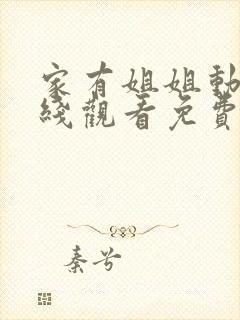 家有姐姐動
綫觀看免費
秦兮